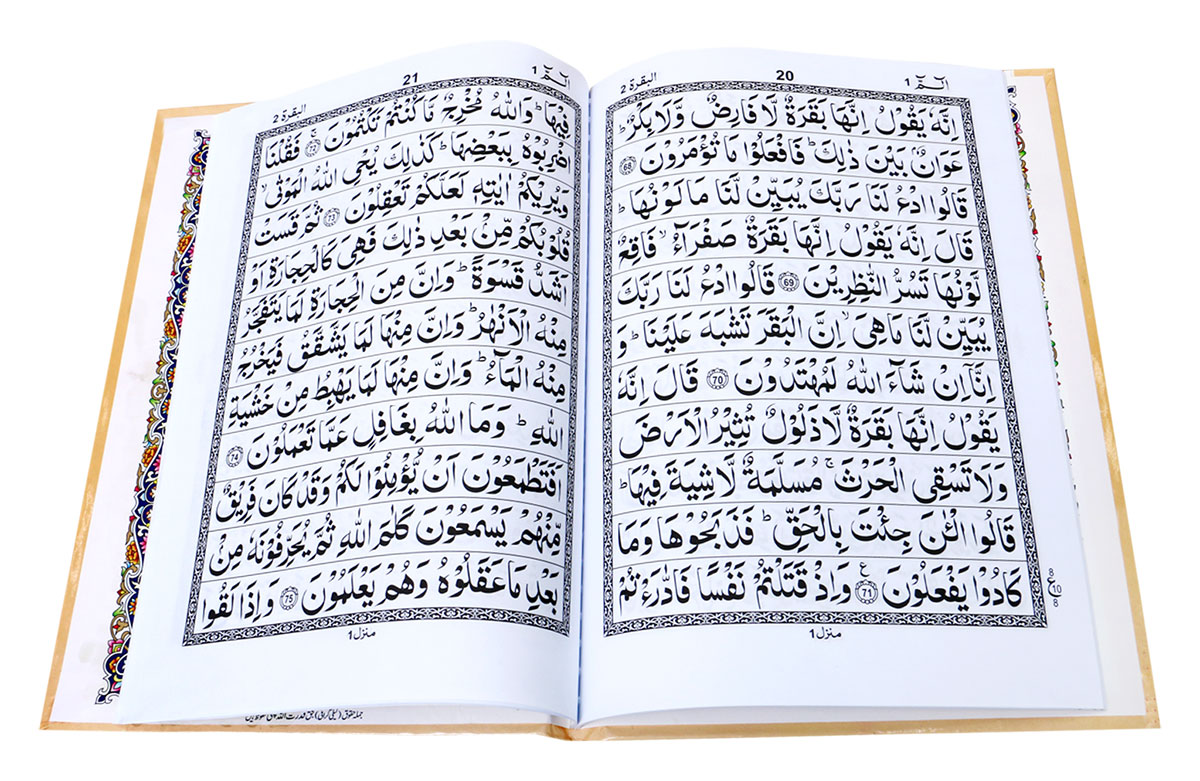 الٓمّٓ 1
20
البقرة 2
اِنَّهٗ يَقُوْلُ اِنَّهَا بَقَرَةٌ لَّا فَارِضٌ وَّلَا بِكْرٌ ؕ
عَوَانٌۢ بَيْنَ ذٰلِكَ ؕ فَافْعَلُوْا مَا تُؤْمَرُوْنَ ۝68
قَالُوا ادْعُ لَنَا رَبَّكَ يُبَيِّنْ لَّنَا مَا لَوْنُهَا ؕ
قَالَ اِنَّهٗ يَقُوْلُ اِنَّهَا بَقَرَةٌ صَفْرَآءُ ۙ فَاقِعٌ
لَّوْنُهَا تَسُرُّ النّٰظِرِيْنَ ۝69 قَالُوا ادْعُ لَنَا رَبَّكَ
يُبَيِّنْ لَّنَا مَا هِيَ ۙ اِنَّ الْبَقَرَ تَشٰبَهَ عَلَيْنَا ؕ وَ
اِنَّاۤ اِنْ شَآءَ اللّٰهُ لَمُهْتَدُوْنَ ۝70 قَالَ اِنَّهٗ
يَقُوْلُ اِنَّهَا بَقَرَةٌ لَّا ذَلُوْلٌ تُثِيْرُ الْاَرْضَ
وَلَا تَسْقِى الْحَرْثَ ۚ مُسَلَّمَةٌ لَّا شِيَةَ فِيْهَا ؕ
قَالُوا الْـٰٔنَ جِئْتَ بِالْحَقِّ ؕ فَذَبَحُوْهَا وَمَا
كَادُوْا يَفْعَلُوْنَ ۝71 ع وَاِذْ قَتَلْتُمْ نَفْسًا فَادّٰرَءْتُمْ
8 ع 10 8
منزل 1
الٓمّٓ 1
21
البقرة 2
فِيْهَا ؕ وَاللّٰهُ مُخْرِجٌ مَّا كُنْتُمْ تَكْتُمُوْنَ ۚ ۝72 فَقُلْنَا
اضْرِبُوْهُ بِبَعْضِهَا ؕ كَذٰلِكَ يُحْيِ اللّٰهُ الْمَوْتٰى ۙ
وَيُرِيْكُمْ اٰيٰتِهٖ لَعَلَّكُمْ تَعْقِلُوْنَ ۝73 ثُمَّ قَسَتْ
قُلُوْبُكُمْ مِّنْۢ بَعْدِ ذٰلِكَ فَهِيَ كَالْحِجَارَةِ اَوْ
اَشَدُّ قَسْوَةً ؕ وَاِنَّ مِنَ الْحِجَارَةِ لَمَا يَتَفَجَّرُ
مِنْهُ الْاَنْهٰرُ ؕ وَاِنَّ مِنْهَا لَمَا يَشَّقَّقُ فَيَخْرُجُ
مِنْهُ الْمَآءُ ؕ وَاِنَّ مِنْهَا لَمَا يَهْبِطُ مِنْ خَشْيَةِ
اللّٰهِ ؕ وَمَا اللّٰهُ بِغَافِلٍ عَمَّا تَعْمَلُوْنَ ۝74
اَفَتَطْمَعُوْنَ اَنْ يُّؤْمِنُوْا لَكُمْ وَقَدْ كَانَ فَرِيْقٌ
مِّنْهُمْ يَسْمَعُوْنَ كَلٰمَ اللّٰهِ ثُمَّ يُحَرِّفُوْنَهٗ مِنْۢ
بَعْدِ مَا عَقَلُوْهُ وَهُمْ يَعْلَمُوْنَ ۝75 وَاِذَا لَقُوا
منزل 1
جملہ حقوق